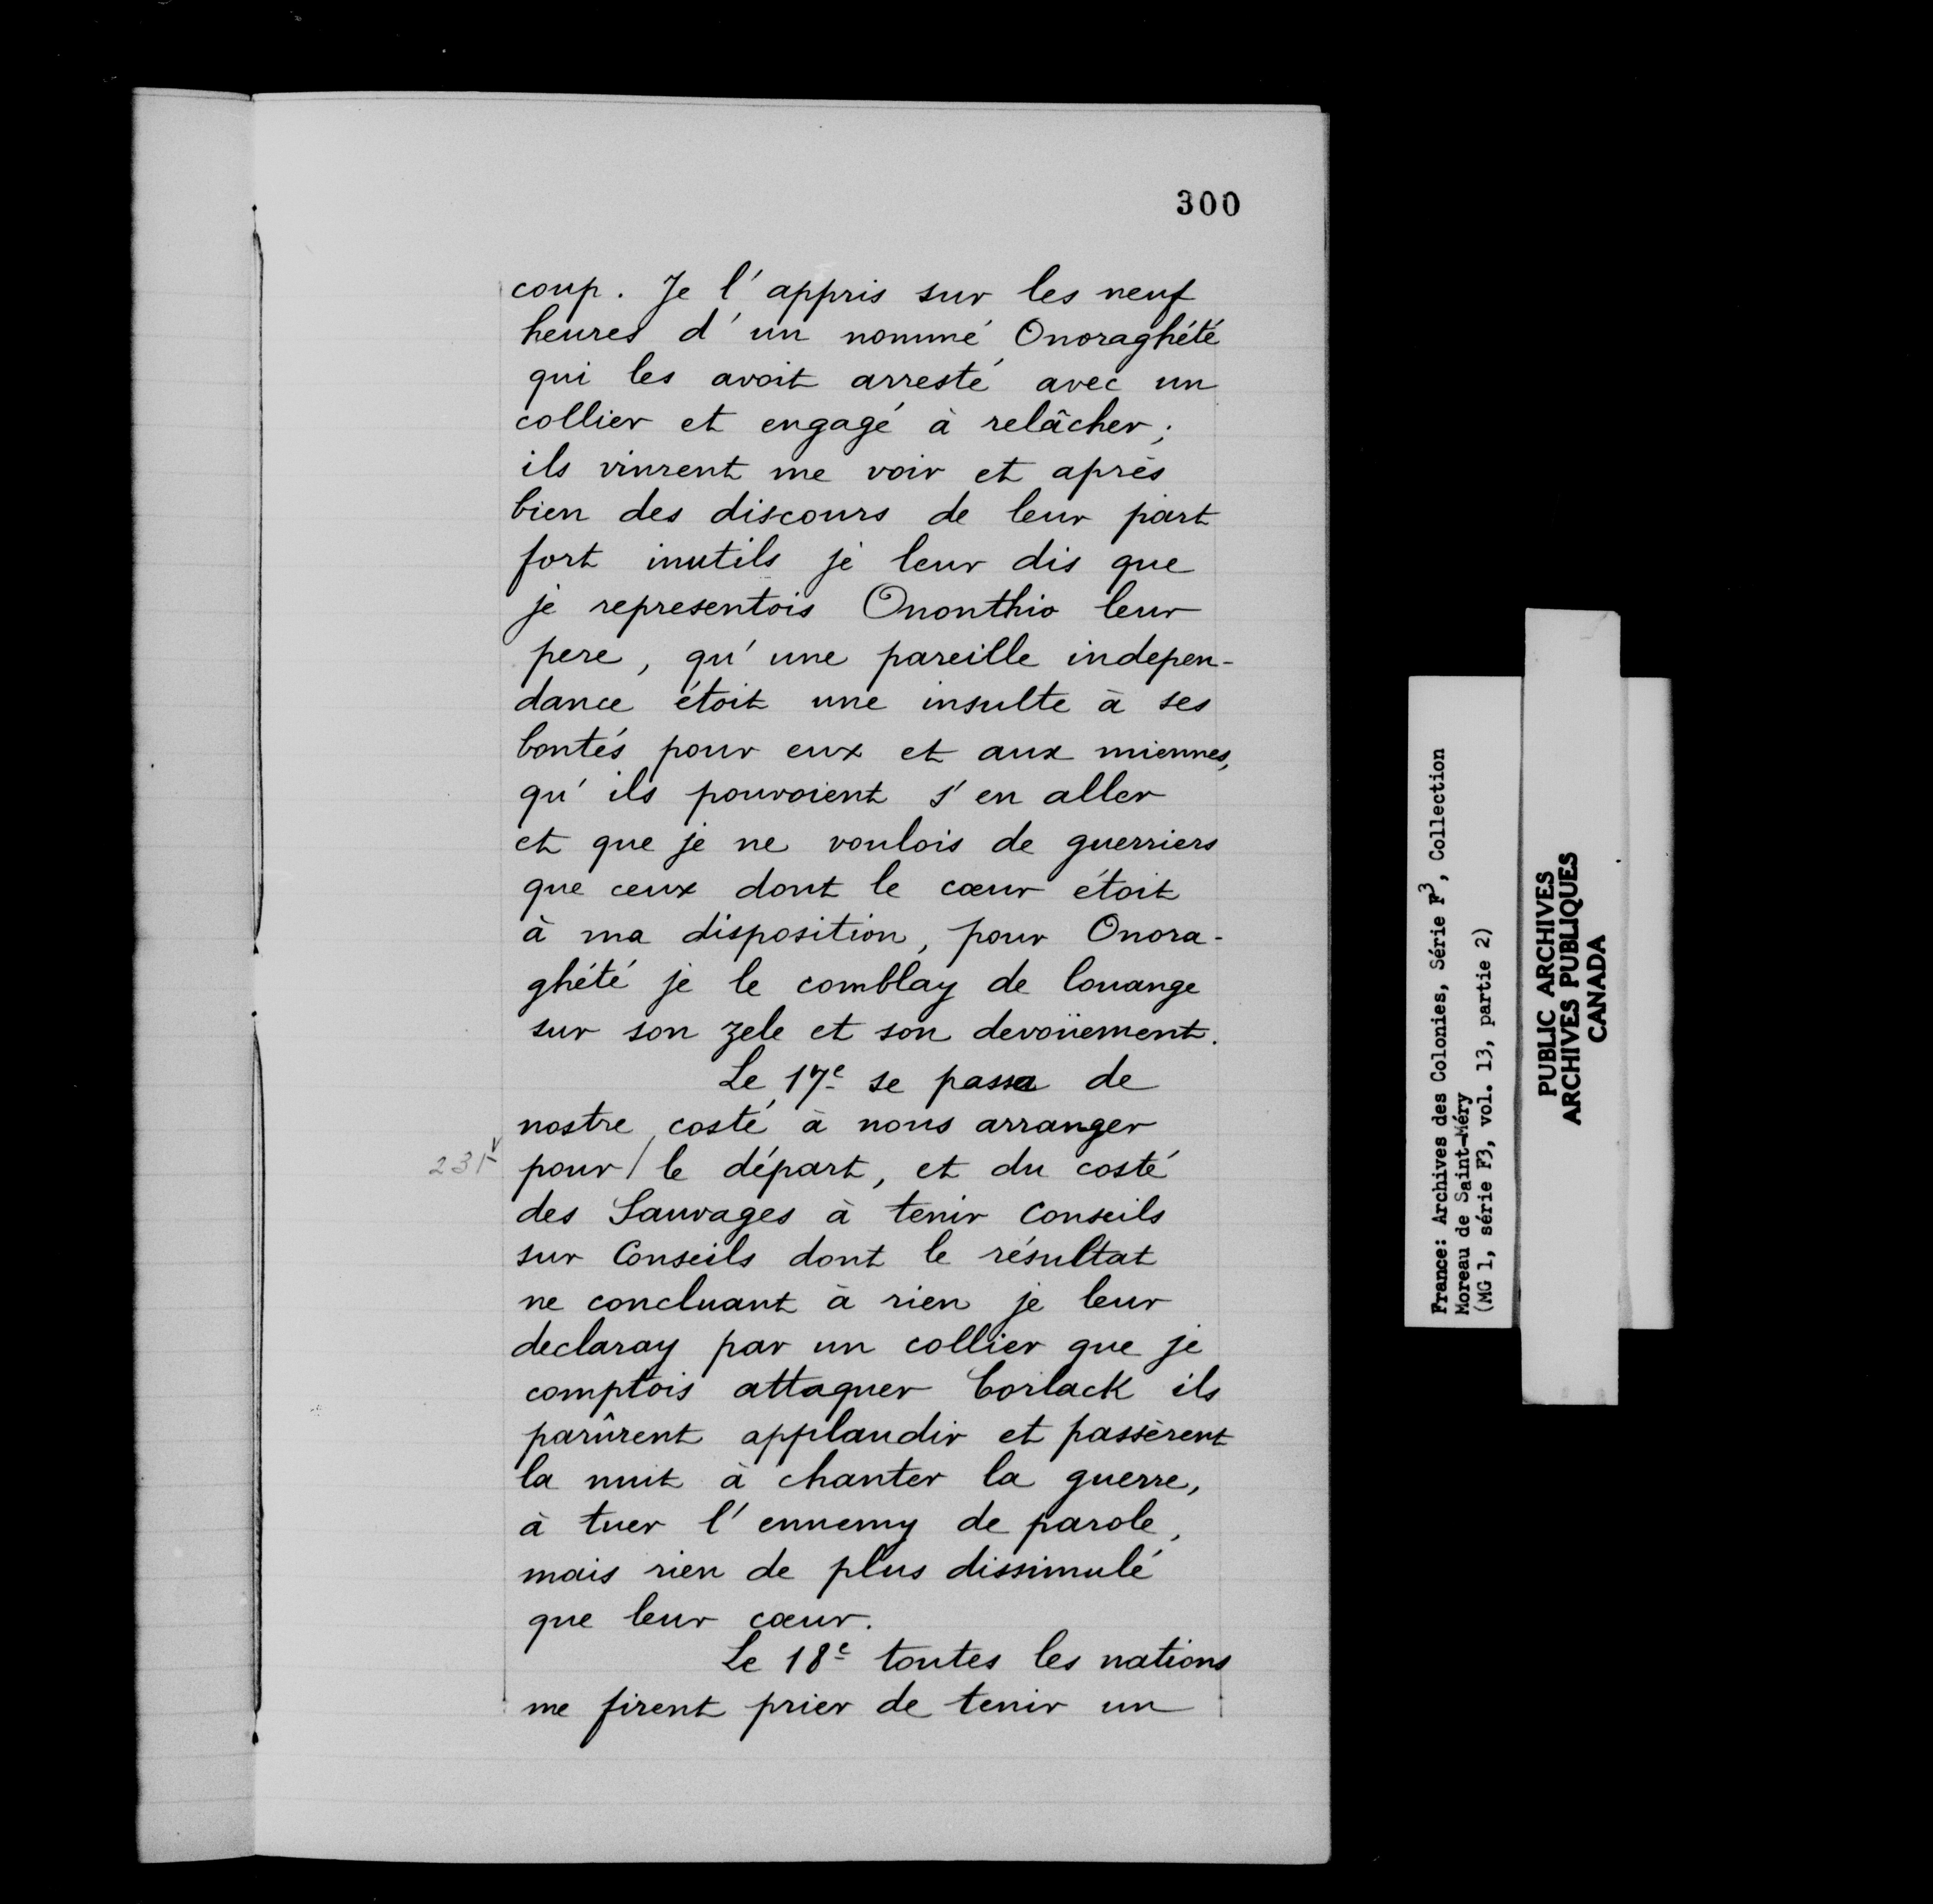 300
coup. Je l'appris sur les neuf
heures d'un nommé Onoraghété
qui les avoit arresté avec un
collier et engagé à relâcher;
ils vinrent me voir et après
bien des discours de leur part
fort inutils je leur dis que
je representois Ononthio leur
pere, qu'une pareille indepen-
dance étoit une insulte à ses
bontés pour eux et aux miennes,
qu'ils pouvoient s'en aller
et que je ne voulois de guerriers
que ceux dont le cœur étoit
à ma disposition, pour Onora-
ghété je le comblay de louange
sur son zele et son devoüement.
Le 17e se passa de
nostre costé à nous arranger
231v pour / le départ, et du costé
des Sauvages à tenir Conseils
sur Conseils dont le résultat
ne concluant à rien je leur
declaray par un collier que je
comptois attaquer Corlack ils
parûrent applaudir et passèrent
la nuit à chanter la guerre,
à tuer l'ennemy de parole,
mais rien de plus dissimulé
que leur cœur.
Le 18e toutes les nations
me firent prier de tenir un
France: Archives des Colonies, Série F3, Collection
Moreau de Saint-Méry
(MG 1, série F3, vol. 13, partie 2)
PUBLIC ARCHIVES
ARCHIVES PUBLIQUES
CANADA